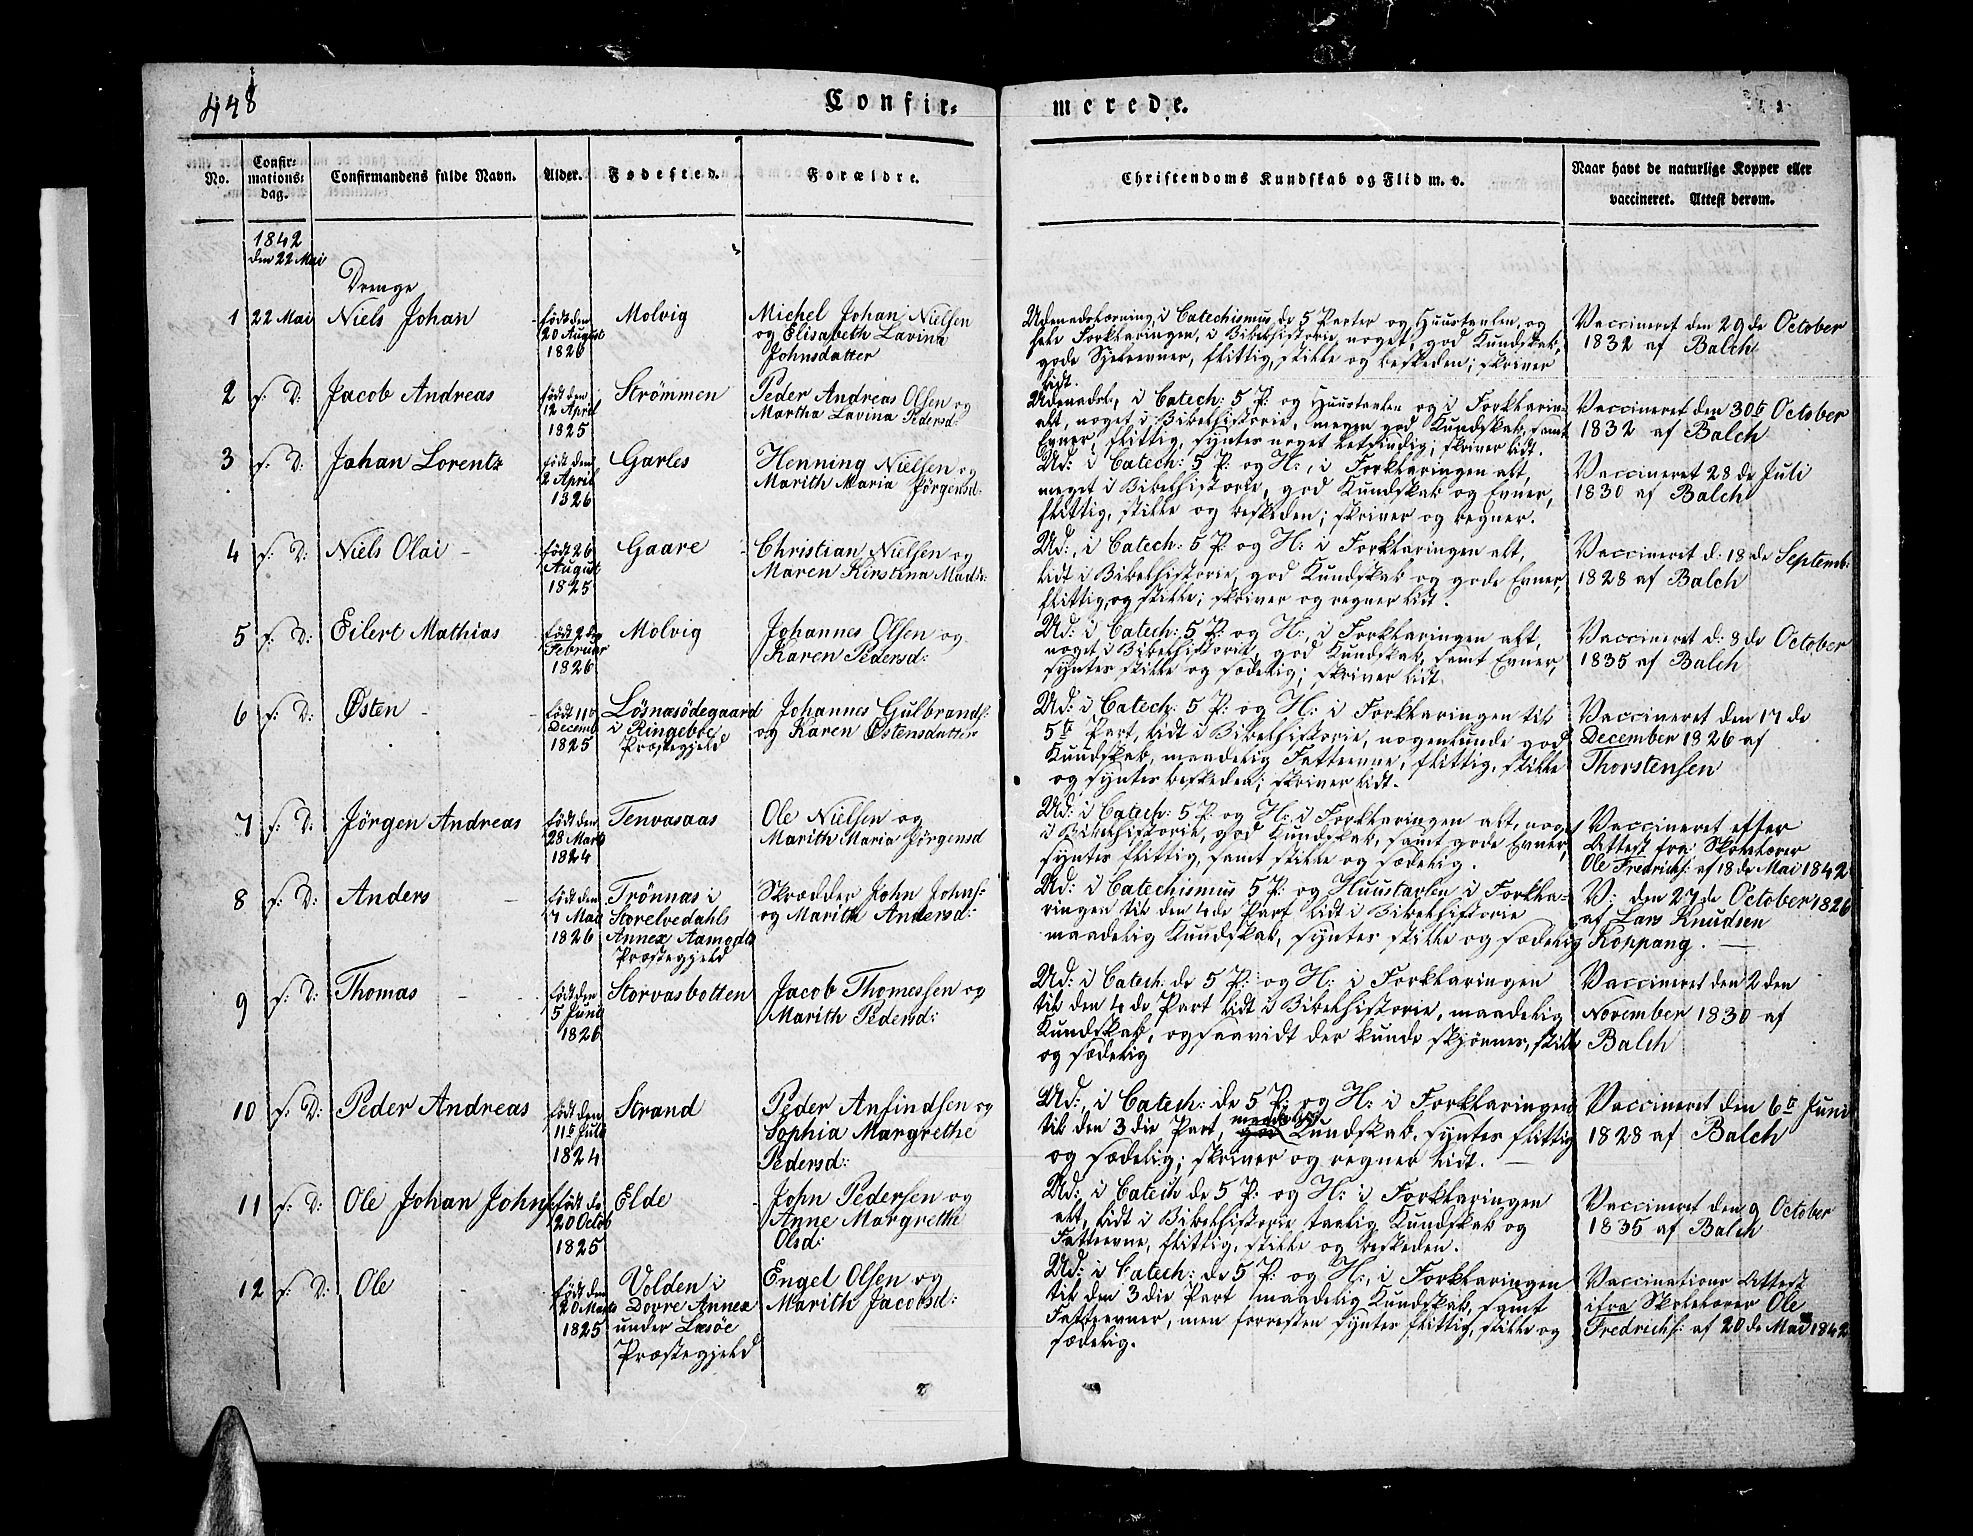 448
Confir=
merede.
No.
Confir=
mations=
dag.
Confirmandens fulde Navn.
Alder.
Fødested.
Forældre.
Christendoms Kundskab og Flid m. v.
Naar havt de naturlige Kopper eller
vaccineret. Attest derom.
1842
den 22 Mai
Drenge
1 22 Mai Niels Johan
født den
20 August
1826
Molvig
Michel Johan Nielsen
og Elisabeth Lavina
Johnsdatter
Udenadslæsning, i Catechismus de 5 Parter og Huustavlen, og
hele Forklaringen, i Bibelhistorie noget, god Kundskab,
gode Sjeleevner, flittig, stille og beskeden; skriver
lidt.
Vaccineret den 29de October
1832 af Balch
2 s: D: Jacob Andreas
født den
12 April
1825
Strömmen
Peder Andreas Olsen og
Martha Lavina Pedersd:
Udenadsl., i Catech: 5 P: og Huustavlen og i Forklarin=
alt, noget i Bibelhistorie, megen god Kundskab, samt
Evner, flittig, syntes noget letsindig; skriver lidt.
Vaccineret den 30te October
1832 af Balch
3 s: D: Johan Lorentz
født den
2 April
1826
Garles
Henning Nielsen og
Marith Maria Jørgensd:
Ud: i Catech: 5 P: og H:, i Forklaringen alt,
meget i Bibelhistorie, god Kundskab og Evner,
flittig, stille og beskeden; skriver og regner.
Vaccineret 28de Juli
1830 af Balch
4 s: D: Niels Olai
født 26
August
1825
Gaare
Christian Nielsen og
Maren Kirstina Madsd:
Ud:, i Catech: 5 P: og H: i Forklaringen alt,
lidt i Bibelhistorie, god Kundskab og gode Evner,
flittig og stille; skriver og regner lidt.
Vaccineret d: 18de Septemb:
1828 af Balch
5 s: D: Eilert Mathias
Februar
1826
Molvig
Johannes Olsen og
Karen Pedersd:
Ud: i Catech: 5 P: og H:, i Forklaringen alt,
noget i Bibelhistorie, god Kundskab, samt Evner,
syntes stille og sædelig; skriver lidt.
Vaccineret d: 8de October
1835 af Balch
6 s: D: Østen
født 11te
Decemb
1825
Løsnæsødegaard
i Ringeboe
Præstegjeld
Johannes Gulbrands:
og Karen Østensdatter
Ud: i Catech: 5 P: og H: i Forklaringen til
5te Part, lidt i Bibelhistorie, nogenlunde god
Kundskab, maadelig Fatteevne, flittig, stille
og syntes beskeden; skriver lidt.
Vaccineret den 17de
December 1826 af
Thorstensen
7 s: D: Jörgen Andreas
født den
28 Marts
1824
Tenvasaas
Ole Nielsen og
Marith Maria Jørgensd
Ud: i Catech: 5 P: og H: i Forklaringen alt, noget
i Bibelhistorie, god Kundskab, samt gode Evner,
syntes flittig, samt stille og sædelig.
Vaccineret efter
Attest fra Skolelærer
Ole Fredrichs: af 18de Mai 1842
8 s: D: Anders
født den
7 Mai
1826
Trönnæs i
Storelvedahls
Annex Aamodts
Præstegjeld
Skrædder John Johns:
og Marith Andersd:
Ud: i Catechismus 5 P: og Huustavlen i Forkla=
ringen til den 4de Part lidt i Bibelhistorie
maadelig Kundskab, syntes stille og sædelig
V: den 27de October 1826
af Lars Knudsen
Koppang.
9 s: D: Thomas
født den
5 Juni
1826
Storvasbotten
Jacob Thomessen og
Marith Pedersd:
Ud: i Catech: de 5 P: og H: i Forklaringen
til den 4de Part lidt i Bibelhistorie, maadelig
Kundskab, og saavidt der kunde skjønnes, stille
og sædelig
Vaccineret den 2den
November 1830 af
Balch
10 s: D: Peder Andreas
født den
11te Juli
1824
Strand
Peder Anfindsen og
Sophia Margrethe
Pedersd:
Ud: i Catech: de 5 P: og H: i Forklaringen
til den 3die Part, god maadelig Kundskab, syntes flittig
og sædelig; skriver og regner lidt.
Vaccineret den 6te Juni
1828 af Balch
11 s: D: Ole Johan Johns:
født de
20 Octob
1825
Elde
John Pedersen og
Anne Margrethe
Olsd:
Ud: i Catech de 5 P: og H: i Forklaringen
alt, lidt i Bibelhistorie taalig Kundskab og
Fatteevne, flittig, stille og beskeden.
Vaccineret den 9 October
1835 af Balch
12 s: D: Ole
født den
20 Marts
1825
Volden i
Dovre Annex
under Læsöe
Præstegjeld
Engel Olsen og
Marith Jacobsd:
Ud: i Catech: de 5 P: og H:, i Forklaringen
til den 3die Part maadelig Kundskab, samt
Fatteevner, men forresten syntes flittig, stille og
sædelig.
Vaccinations Attest
ifra Skolelærer Ole
Fredrichs: af 20de Mai 1842